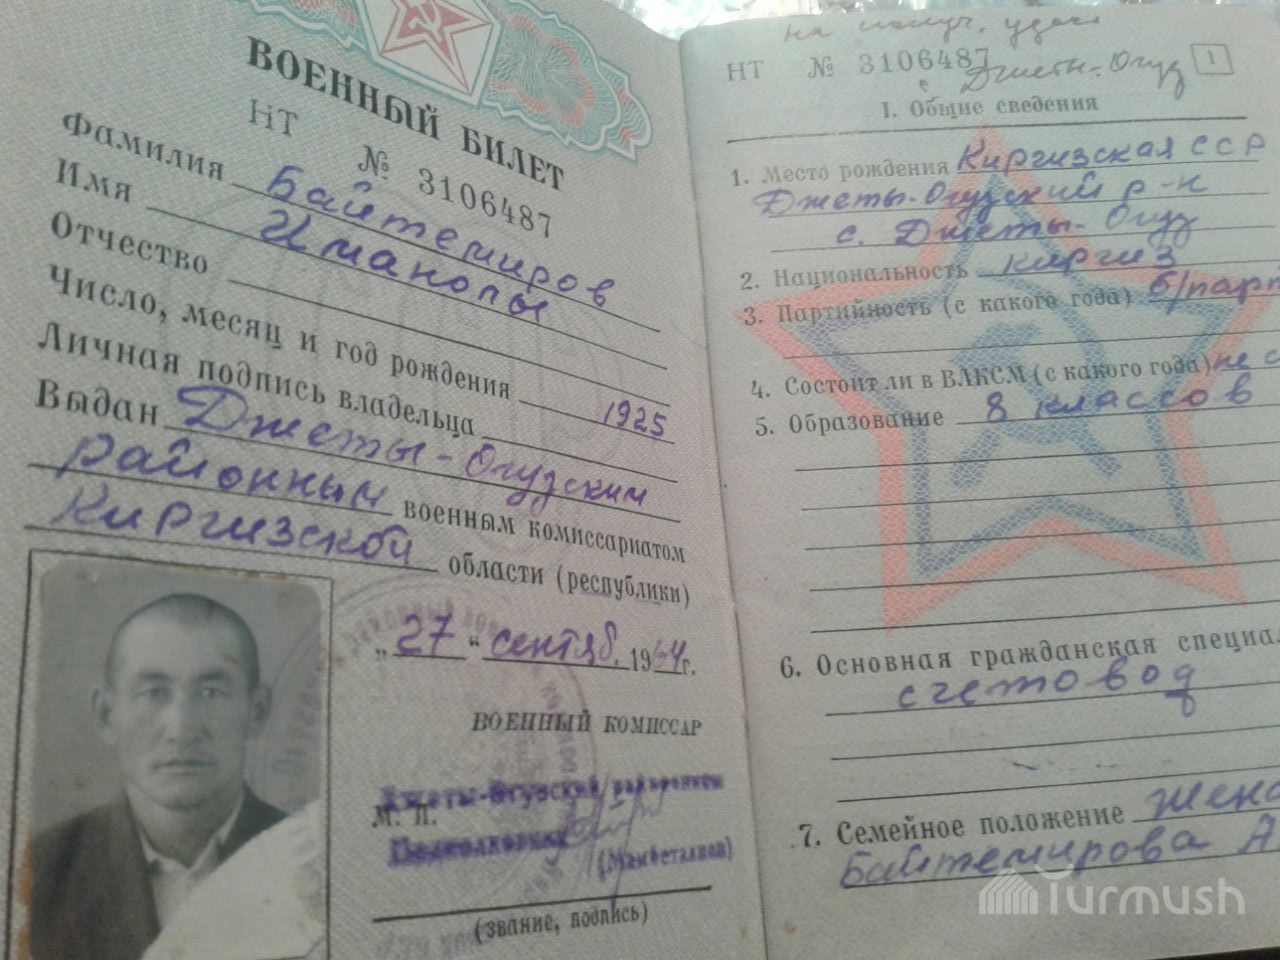 ВОЕННЫЙ БИЛЕТ
НТ № 3106487
Фамилия Байтемиров
Имя Иманалы
Отчество
Число, месяц и год рождения 1925
Личная подпись владельца
Выдан Джеты-Огузским
районным военным комиссариатом
Киргизской области (республики)
„27“ сентяб. 1964 г.
ВОЕННЫЙ КОМИССАР
Джеты-Огузский
М. П.
Подполковник
(звание, подпись)
на получ. удос
НТ № 3106487
с Джеты-Огуз
1
I. Общие сведения
1. Место рождения Киргизская ССР
Джеты-Огузский р-н
с. Джеты-Огуз
2. Национальность киргиз
3. Партийность (с какого года) б/парт
4. Состоит ли в ВЛКСМ (с какого года) не с
5. Образование 8 классов
6. Основная гражданская специа
счетовод
7. Семейное положение жена
Байтемирова А
Turmush